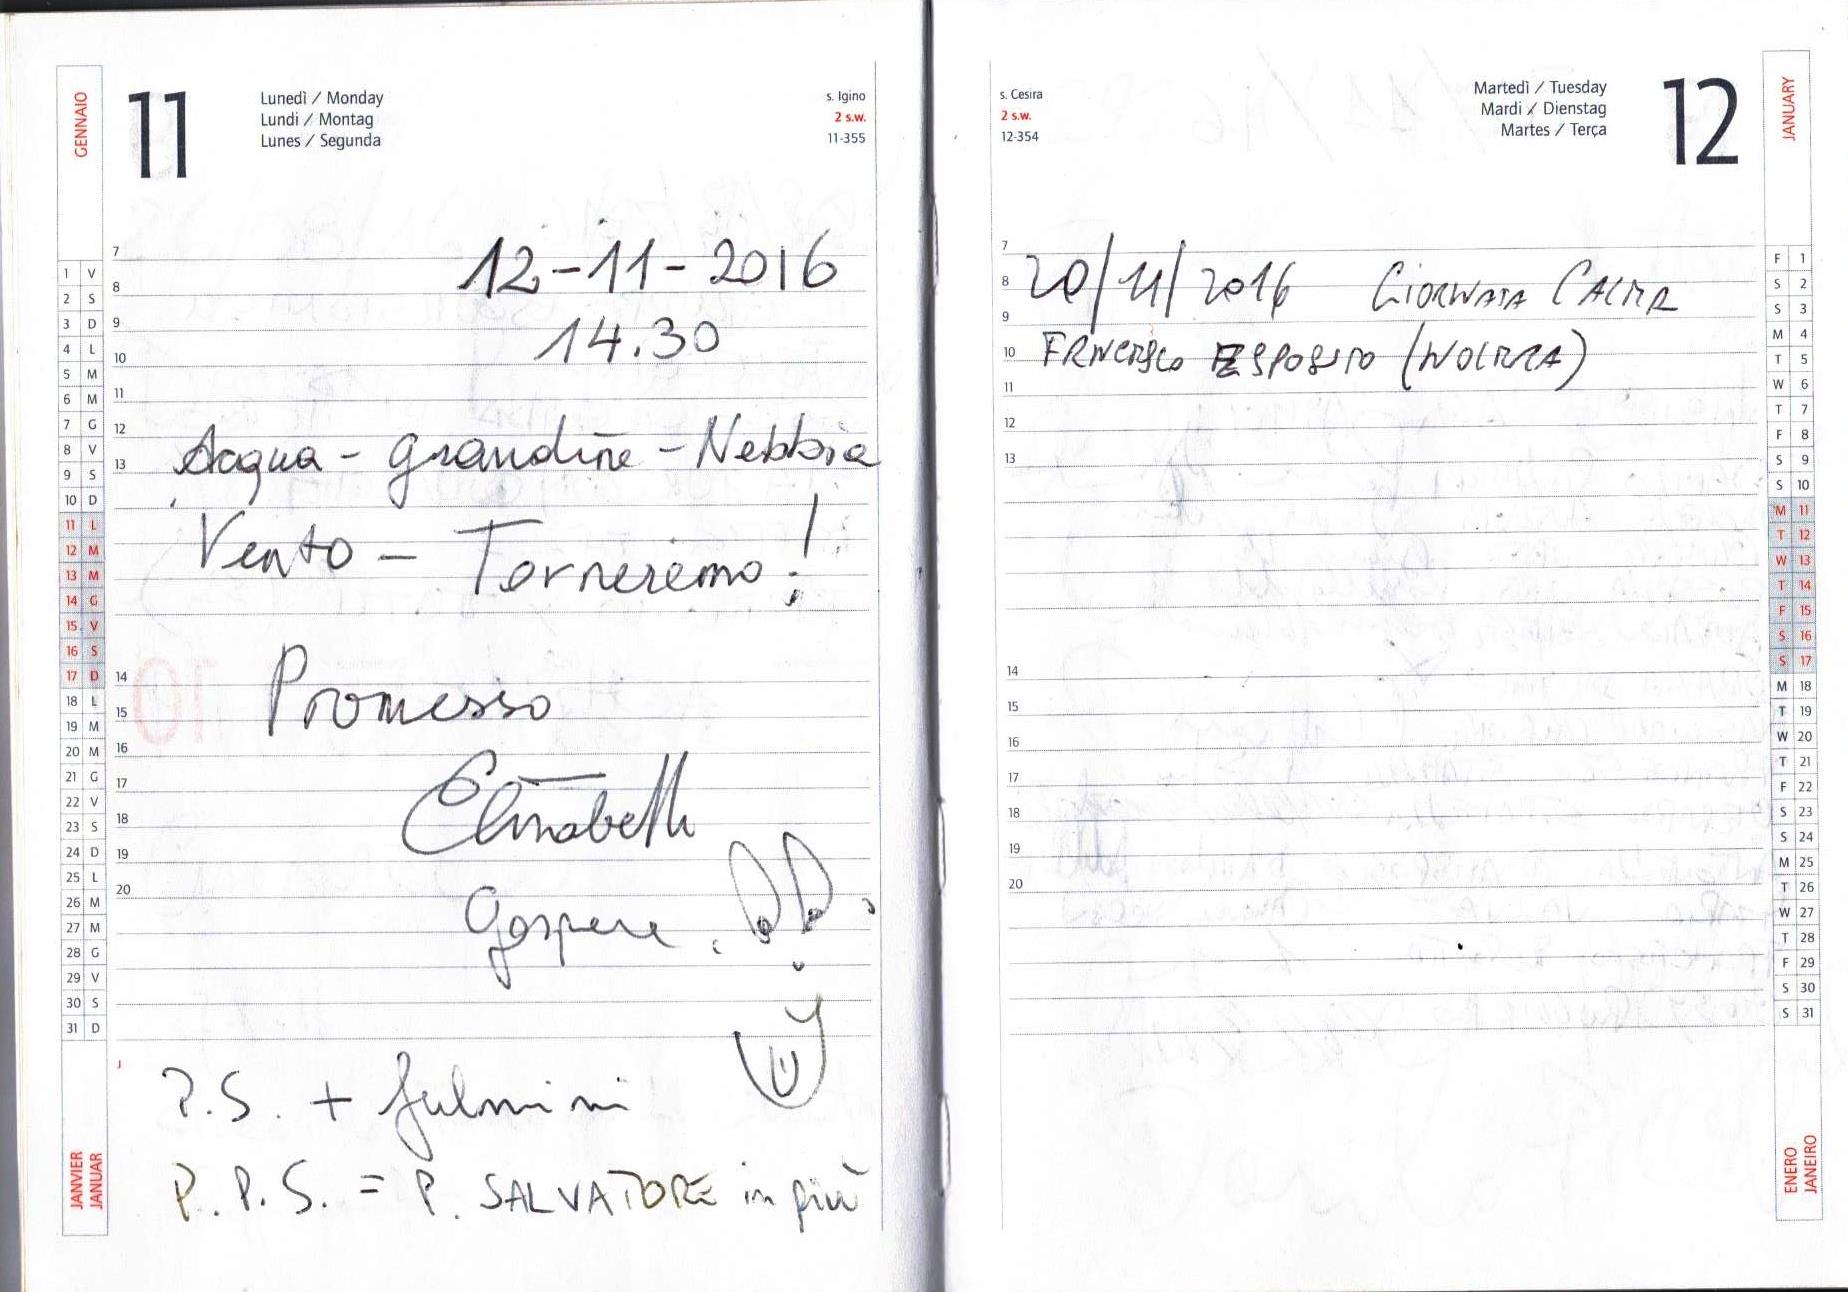 GENNAIO
11
Lunedì / Monday
Lundi / Montag
Lunes / Segunda
s. Igino
2 s.w.
11-355
12-11-2016
14.30
Acqua - grandine - Nebbia
Vento - Torneremo!
Promesso
Elisabetta
Gaspare
P.S. + fulmini
P.P.S. = P. SALVATORE in più
7
8
9
10
11
12
13
14
15
16
17
18
19
20
1 V
2 S
3 D
4 L
5 M
6 M
7 G
8 V
9 S
10 D
11 L
12 M
13 M
14 G
15 V
16 S
17 D
18 L
19 M
20 M
21 G
22 V
23 S
24 D
25 L
26 M
27 M
28 G
29 V
30 S
31 D
JANVIER
JANUAR
s. Cesira
2 s.w.
12-354
Martedì / Tuesday
Mardi / Dienstag
Martes / Terça
12
JANUARY
20/11/2016 GIORNATA CALMA
FRANCESCO ESPOSITO (NOCERA)
7
8
9
10
11
12
13
14
15
16
17
18
19
20
F 1
S 2
S 3
M 4
T 5
W 6
T 7
F 8
S 9
S 10
M 11
T 12
W 13
T 14
F 15
S 16
S 17
M 18
T 19
W 20
T 21
F 22
S 23
S 24
M 25
T 26
W 27
T 28
F 29
S 30
S 31
ENERO
JANEIRO